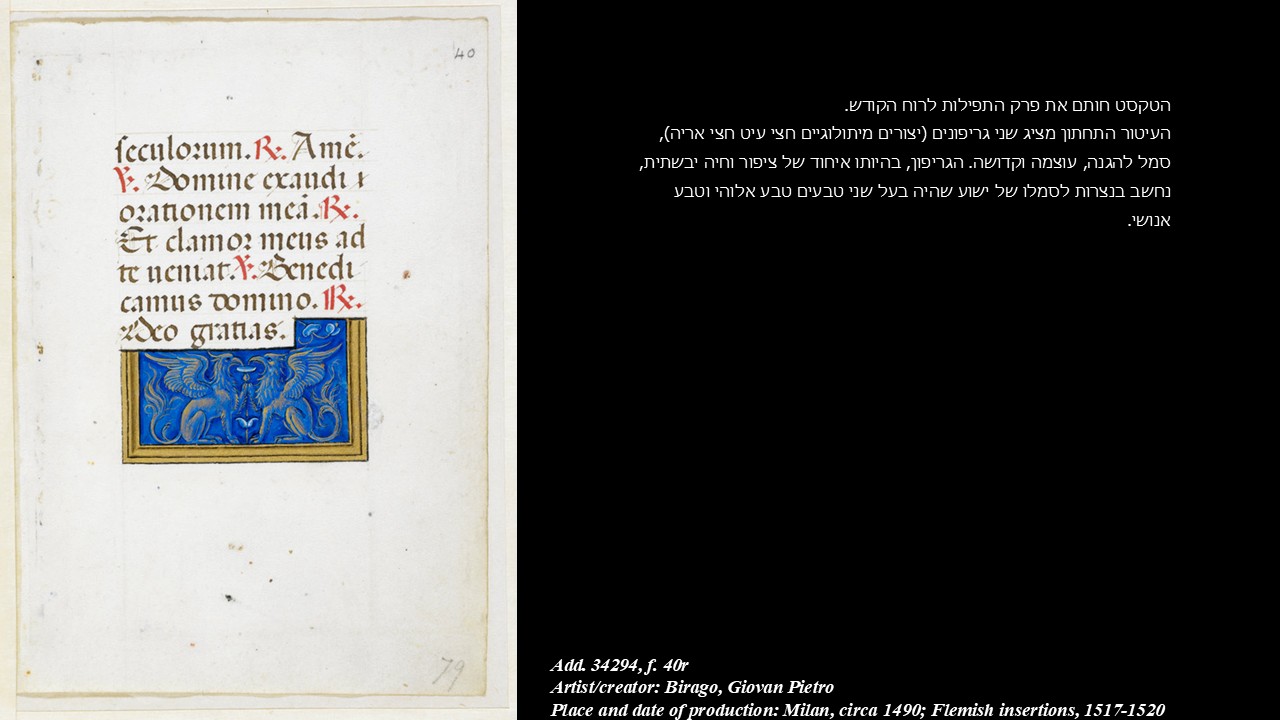 40
seculorum. R. Amē.
V. Domine exaudi
orationem meā. R.
Et clamor meus ad
te ueniat. V. Benedi
camus domino. R.
Deo gratias.
79
הטקסט חותם את פרק התפילות לרוח הקודש.
העיטור התחתון מציג שני גריפונים (יצורים מיתולוגיים חצי עיט חצי אריה),
סמל להגנה, עוצמה וקדושה. הגריפון, בהיותו איחוד של ציפור וחיה יבשתית,
נחשב בנצרות לסמלו של ישוע שהיה בעל שני טבעים טבע אלוהי וטבע
אנושי.
Add. 34294, f. 40r
Artist/creator: Birago, Giovan Pietro
Place and date of production: Milan, circa 1490; Flemish insertions, 1517-1520